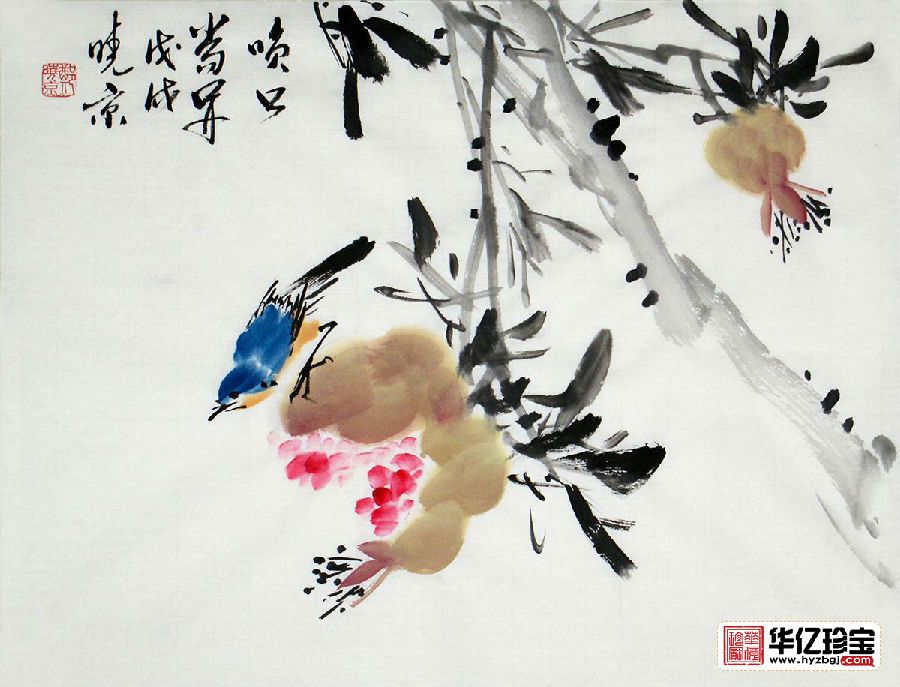 咲口
常开
戊戌
晓京
华亿珍宝
www.hyzbgj.com